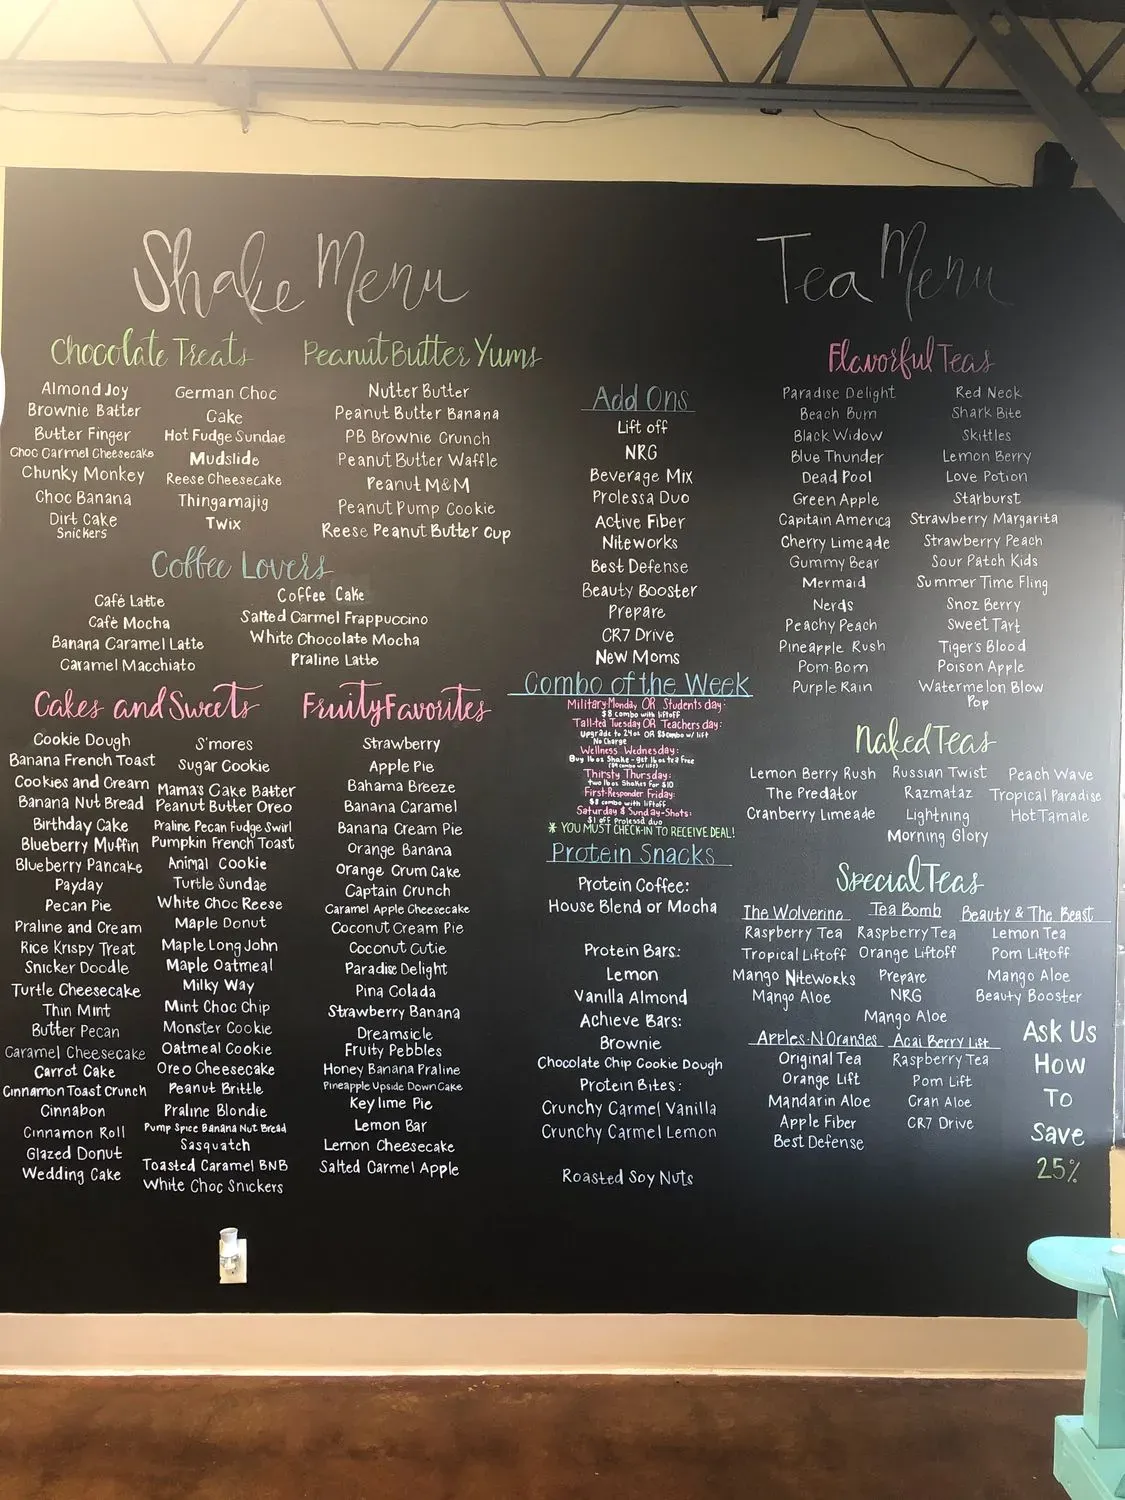 Shake Menu
Chocolate Treats
Almond Joy
Brownie Batter
Butter Finger
Choc Carmel Cheesecake
Chunky Monkey
Choc Banana
Dirt Cake
Snickers
German Choc
Cake
Hot Fudge Sundae
Mudslide
Reese Cheesecake
Thingamajig
Twix
Peanut Butter Yums
Nutter Butter
Peanut Butter Banana
PB Brownie Crunch
Peanut Butter Waffle
Peanut M&M
Peanut Pump Cookie
Reese Peanut Butter Cup
Coffee Lovers
Café Latte
Café Mocha
Banana Caramel Latte
Caramel Macchiato
Coffee Cake
Salted Carmel Frappuccino
White Chocolate Mocha
Praline Latte
Cakes and Sweets
Cookie Dough
Banana French Toast
Cookies and Cream
Banana Nut Bread
Birthday Cake
Blueberry Muffin
Blueberry Pancake
Payday
Pecan Pie
Praline and Cream
Rice Krispy Treat
Snicker Doodle
Turtle Cheesecake
Thin Mint
Butter Pecan
Caramel Cheesecake
Carrot Cake
Cinnamon Toast Crunch
Cinnabon
Cinnamon Roll
Glazed Donut
Wedding Cake
S'mores
Sugar Cookie
Mama's Cake Batter
Peanut Butter Oreo
Praline Pecan Fudge Swirl
Pumpkin French Toast
Animal Cookie
Turtle Sundae
White Choc Reese
Maple Donut
Maple Long John
Maple Oatmeal
Milky Way
Mint Choc Chip
Monster Cookie
Oatmeal Cookie
Oreo Cheesecake
Peanut Brittle
Praline Blondie
Pump Spice Banana Nut Bread
Sasquatch
Toasted Caramel BNB
White Choc Snickers
Fruity Favorites
Strawberry
Apple Pie
Bahama Breeze
Banana Caramel
Banana Cream Pie
Orange Banana
Orange Crum Cake
Captain Crunch
Caramel Apple Cheesecake
Coconut Cream Pie
Coconut Cutie
Paradise Delight
Pina Colada
Strawberry Banana
Dreamsicle
Fruity Pebbles
Honey Banana Praline
Pineapple Upside Down Cake
Key lime Pie
Lemon Bar
Lemon Cheesecake
Salted Carmel Apple
Add Ons
Lift off
NRG
Beverage Mix
Prolessa Duo
Active Fiber
Niteworks
Best Defense
Beauty Booster
Prepare
CR7 Drive
New Moms
Combo of the Week
Military Monday OR Students day:
$8 combo with liftoff
Tall-tea Tuesday OR Teachers day:
Upgrade to 24oz OR $8combo w/ lift
No Charge
Wellness Wednesday:
Buy 16oz Shake - get 16oz tea Free
Thirsty Thursday:
two 16oz Shakes for $10
First-Responder Friday:
$8 combo with liftoff
Saturday & Sunday-Shots:
$1 off Prolessa duo
* YOU MUST CHECK-IN TO RECEIVE DEAL!
Protein Snacks
Protein Coffee:
House Blend or Mocha
Protein Bars:
Lemon
Vanilla Almond
Achieve Bars:
Brownie
Chocolate Chip Cookie Dough
Protein Bites:
Crunchy Carmel Vanilla
Crunchy Carmel Lemon
Roasted Soy Nuts
Tea Menu
Flavorful Teas
Paradise Delight
Beach Bum
Black Widow
Blue Thunder
Dead Pool
Green Apple
Capitain America
Cherry Limeade
Gummy Bear
Mermaid
Nerds
Peachy Peach
Pineapple Rush
Pom-Bom
Purple Rain
Red Neck
Shark Bite
Skittles
Lemon Berry
Love Potion
Starburst
Strawberry Margarita
Strawberry Peach
Sour Patch Kids
Summer Time Fling
Snoz Berry
Sweet Tart
Tiger's Blood
Poison Apple
Watermelon Blow
Pop
Naked Teas
Lemon Berry Rush
The Predator
Cranberry Limeade
Russian Twist
Razmataz
Lightning
Morning Glory
Peach Wave
Tropical Paradise
Hot Tamale
Special Teas
The Wolverine
Raspberry Tea
Tropical Liftoff
Mango Niteworks
Mango Aloe
Tea Bomb
Raspberry Tea
Orange Liftoff
Prepare
NRG
Mango Aloe
Beauty & The Beast
Lemon Tea
Pom Liftoff
Mango Aloe
Beauty Booster
Apples-N-Oranges
Original Tea
Orange Lift
Mandarin Aloe
Apple Fiber
Best Defense
Acai Berry Lift
Raspberry Tea
Pom Lift
Cran Aloe
CR7 Drive
Ask Us
How
To
Save
25%